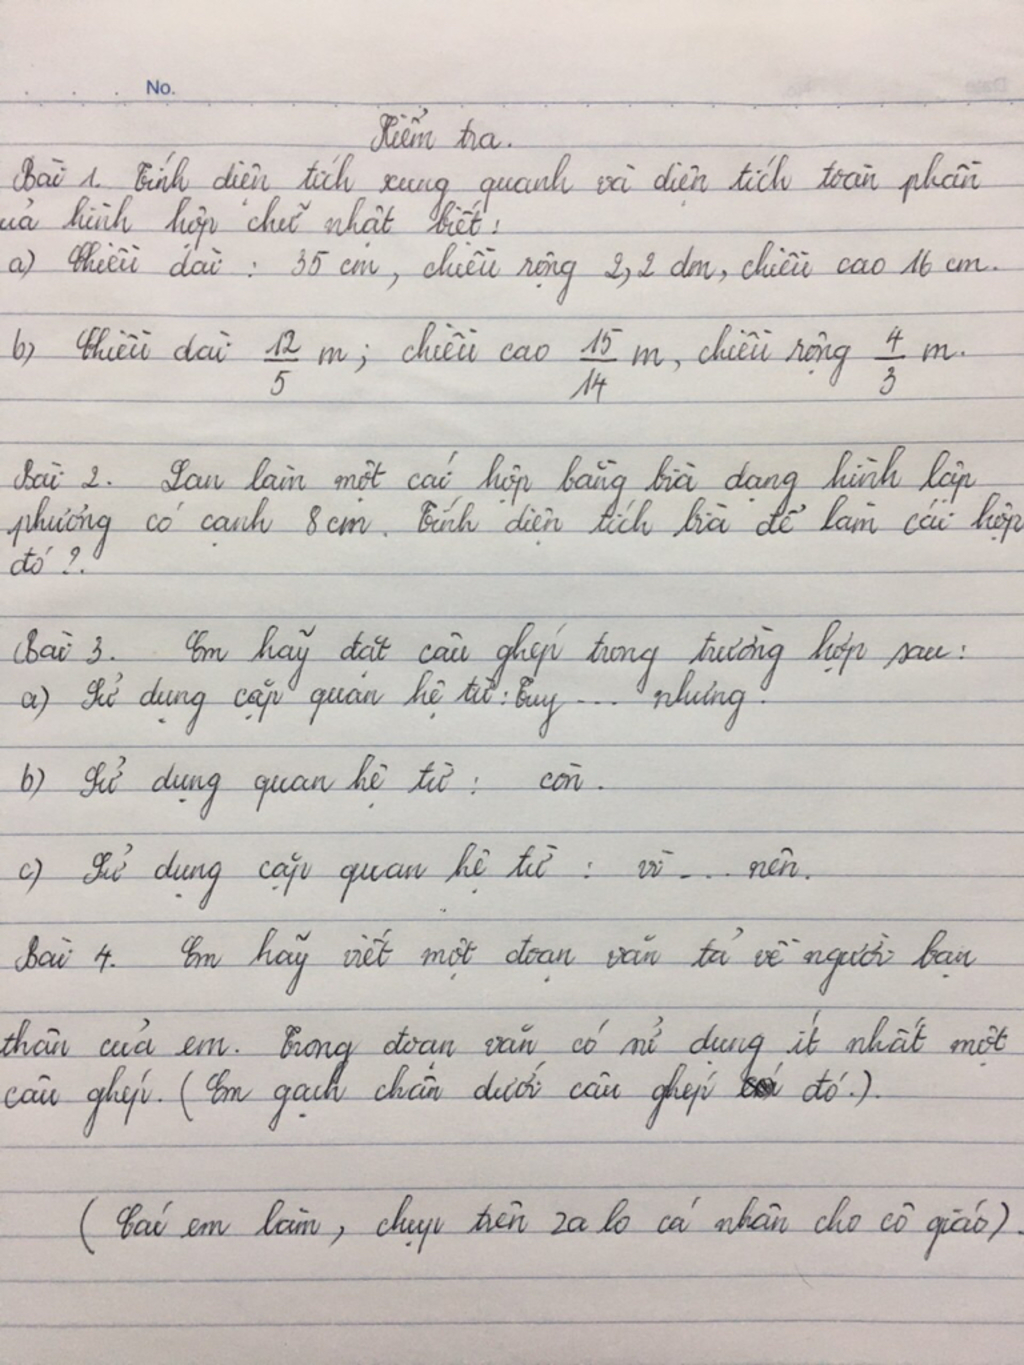 No.
Kiểm tra.
Bài 1. Tính diện tích xung quanh và diện tích toàn phần
của hình hộp chữ nhật biết:
a) Chiều dài : 35 cm, chiều rộng 2,2 dm, chiều cao 16 cm.
b) Chiều dài 12/5 m; chiều cao 15/14 m, chiều rộng 4/3 m.
Bài 2. Lan làm một cái hộp bằng bìa dạng hình lập
phương có cạnh 8 cm. Tính diện tích bìa để làm cái hộp
đó ?.
Bài 3. Em hãy đặt câu ghép trong trường hợp sau:
a) Sử dụng cặp quan hệ từ: Tuy ... nhưng.
b) Sử dụng quan hệ từ : còn.
c) Sử dụng cặp quan hệ từ : vì ... nên.
Bài 4. Em hãy viết một đoạn văn tả về người bạn
thân của em. Trong đoạn văn có sử dụng ít nhất một
câu ghép. (Em gạch chân dưới câu ghép đó.).
(Các em làm, chụp trên za lo cá nhân cho cô giáo).